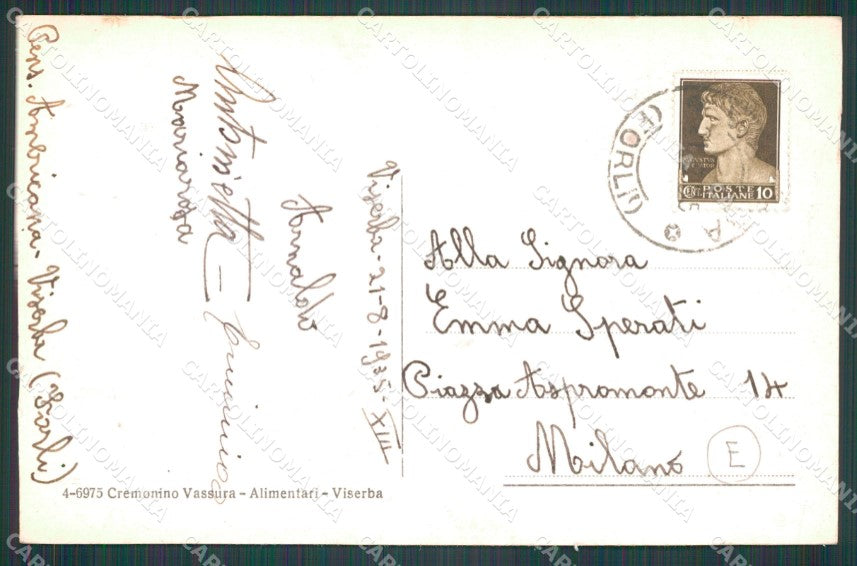 Pens. Americana - Viserba (Forlì)
Mariarosa
Antonietta
Arnaldo
Viserba - 21-8-1935-XIII
(FORLI)
POSTE
ITALIANE
10
Alla Signora
Emma Sperati
Piazza Aspromonte 14
Milano
E
4-6975 Cremonino Vassura - Alimentari - Viserba
CARTOLINOMANIA